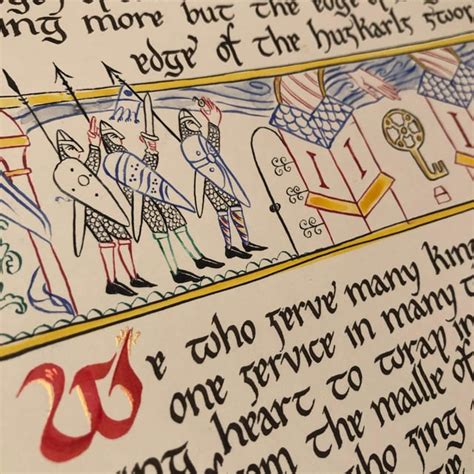 ing more but the edge of
edge of the huskarls swor
We who serve many king
one service in many
ing heart to wrap
from the maille of
who sing